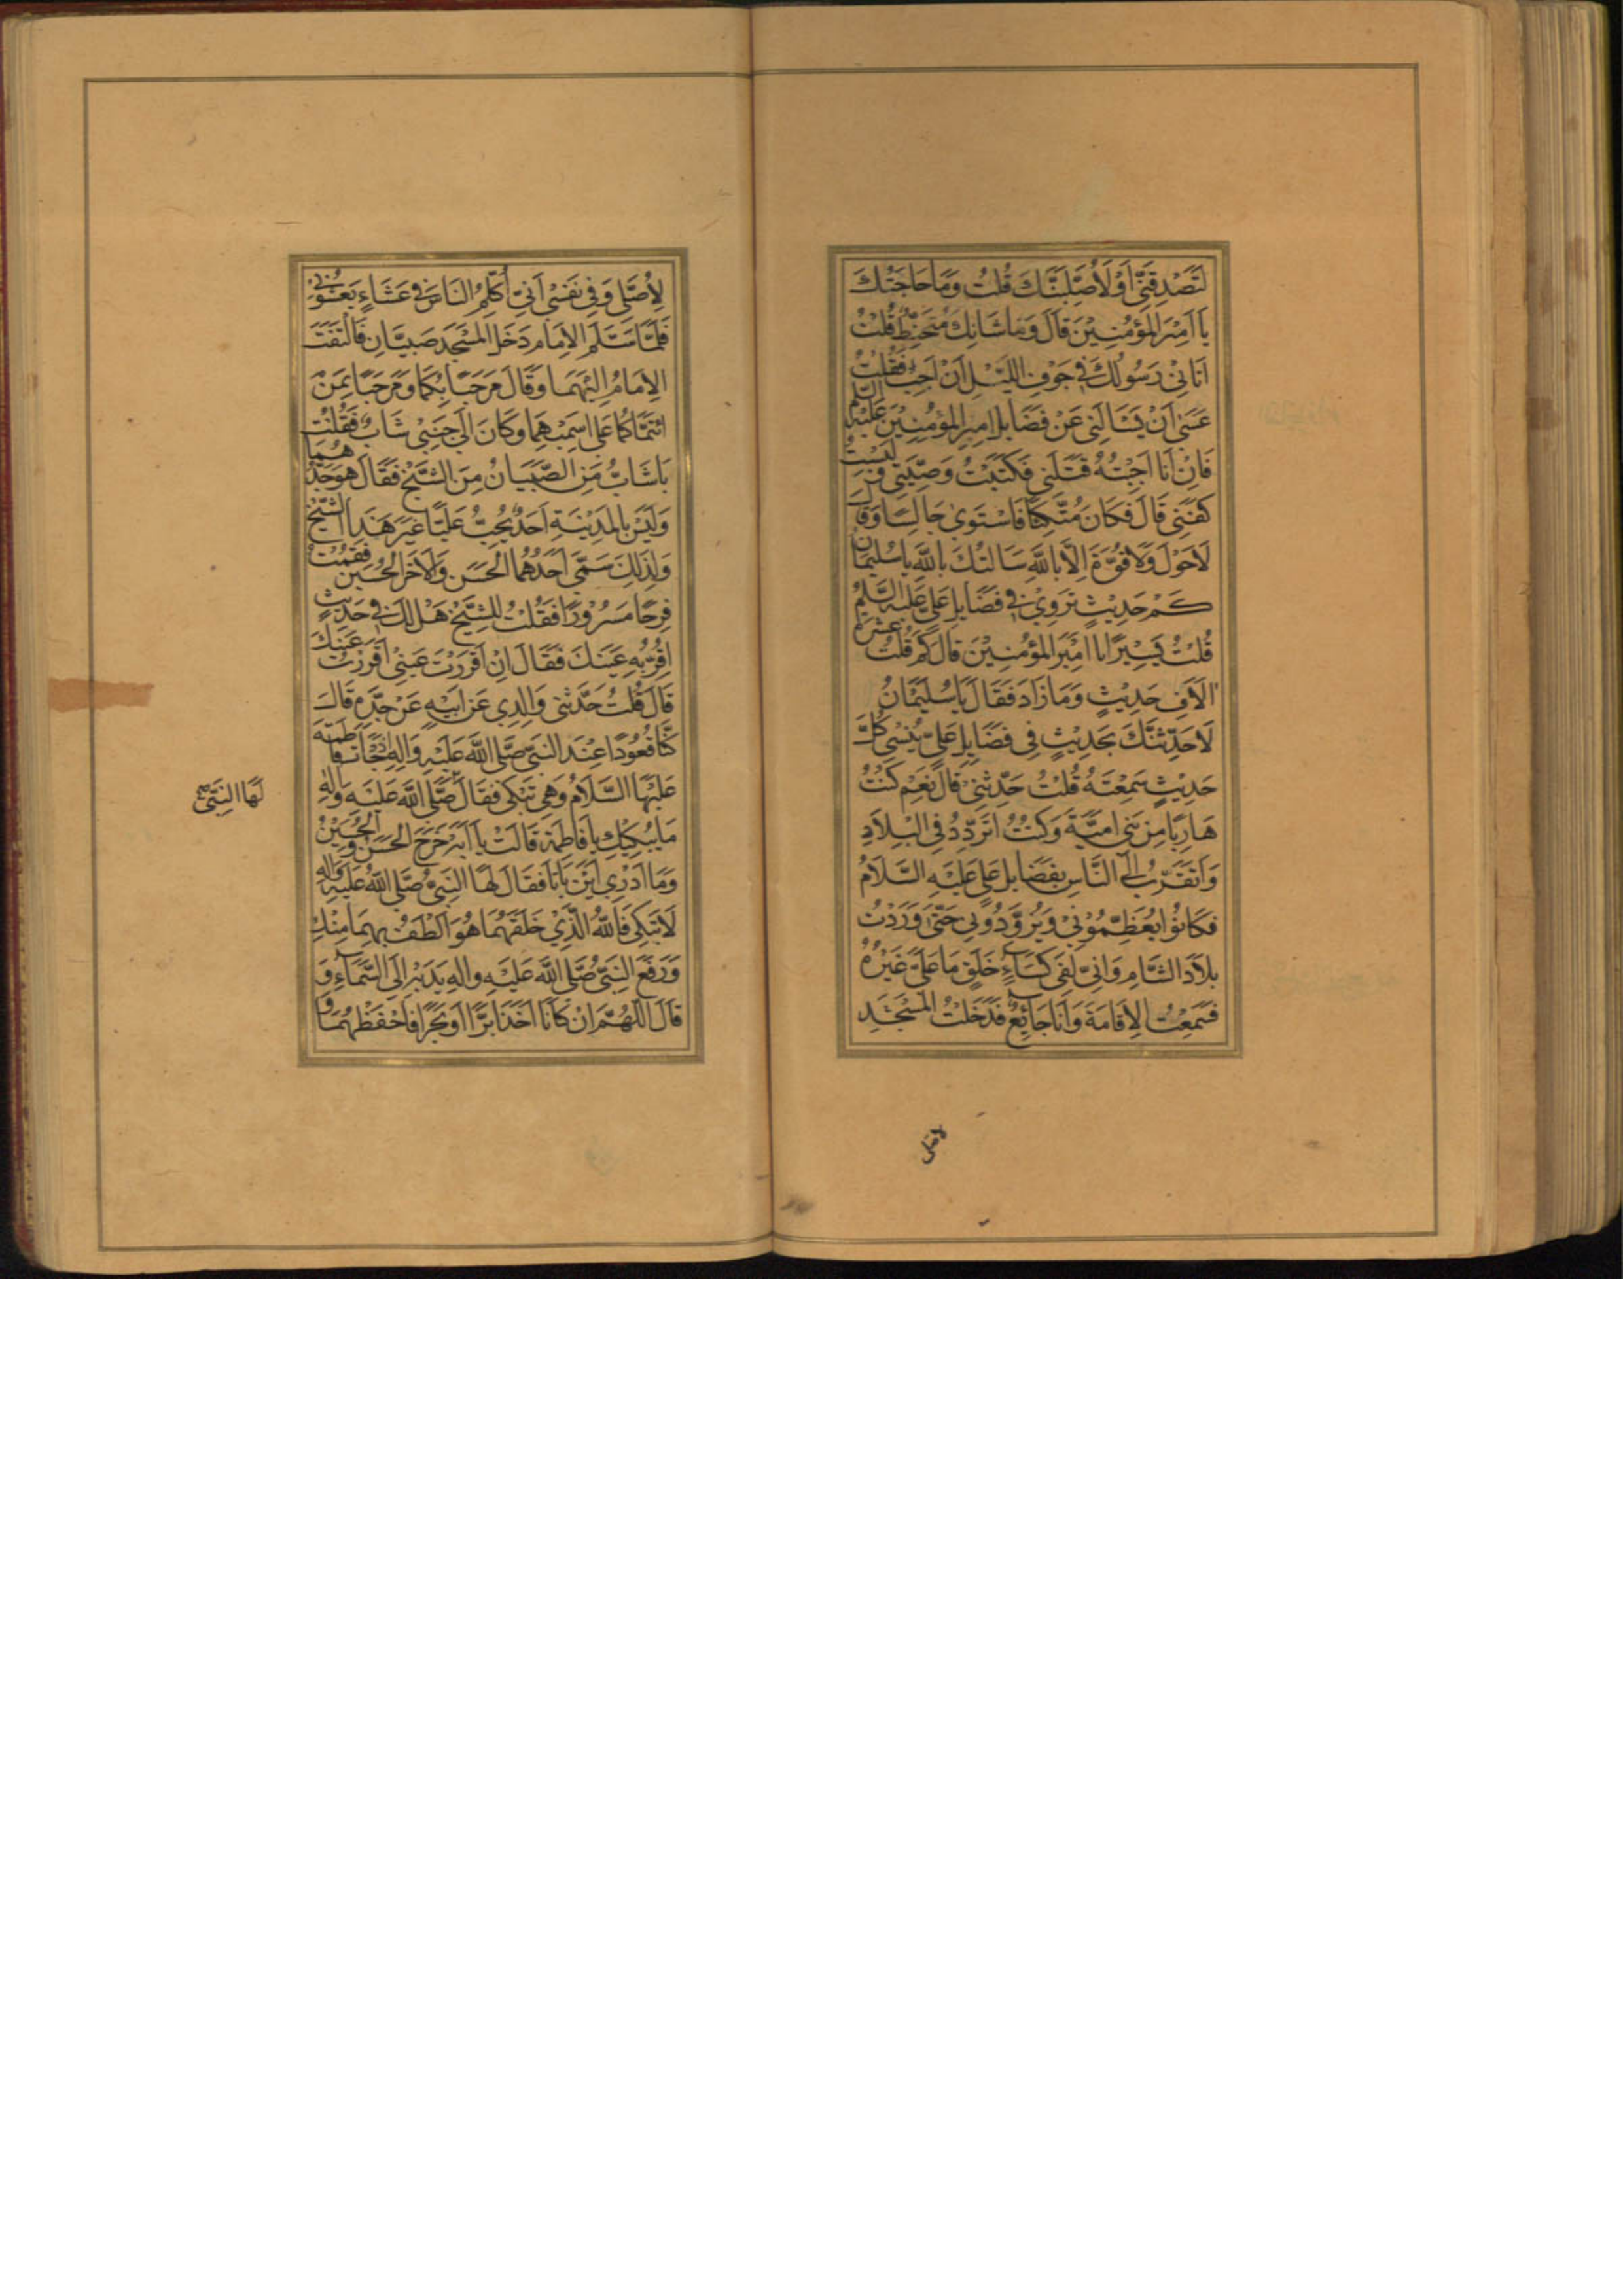 لَتَصْدِقَنِّى اَوْ لَاُصَلِّبَنَّكَ قُلتُ وَمَا حَاجَتُكَ
يَا اَمِيْرَ المُؤمِنِيْنَ قَالَ وَمَا شَانُكَ مُتَحَنِّطٌ قُلْتُ
اَتَانِيْ رَسُولُكَ فِى جَوْفِ اللَّيْلِ اَنْ اَجِبْ فَقُلْتُ
عَسٰى اَنْ يَسْاَلَنِى عَنْ فَضَايِلِ اَمِيْرِ المُؤمِنِيْنَ عَلَيْهِ السَّلم
فَاِنْ اَنَا اَجَبْتُهُ قَتَلَنِى فَكَتَبْتُ وَصِيَّتِى وَ لَبِسْتُ
كَفَنِى قَالَ فَكَانَ مُتَّكِئًا فَاسْتَوىٰ جَالِسًا وَقَالَ
لَاحَوْلَ وَلَا قُوَّةَ اِلَّا بِاللّٰهِ سَالتُكَ بِاللّٰهِ يَا سُلَيْمَانُ
كَمْ حَدِيْثٍ تَرْوِيْ فِى فَضَايِلِ عَلِىٍّ عَلَيْهِ السَّلم
قُلْتُ يَسِيْرًا يَا اَمِيْرَ المُؤمِنِيْنَ قَالَ كَمْ قُلْتُ عَشَرَة
اٰلَافِ حَدِيْثٍ وَمَا زَادَ فَقَالَ يَا سُلَيْمَانُ
لَاُحَدِّثَنَّكَ بِحَدِيْثٍ فِى فَضَايِلِ عَلِىٍّ يُنْسِى كُلَّ
حَدِيْثٍ سَمِعْتَهُ قُلْتُ حَدِّثْنِىْ قَالَ نَعَمْ كُنْتُ
هَارِبًا مِنْ بَنِى اُمَيَّةَ وَكُنْتُ اَتَرَدَّدُ فِى الْبِلَادِ
وَاَتَقَرَّبُ اِلَى النَّاسِ بِفَضَايِلِ عَلِىٍّ عَلَيْهِ السَّلَامُ
فَكَانُوا يُعَظِّمُوْنِىْ وَيُزَوِّدُونِى حَتّىٰ وَرَدْتُ
بِلَادَ الشَّامِ وَاِنِّى لَفِى كِسَاءٍ خَلَقٍ مَا عَلَىَّ غَيْرُهُ
فَسَمِعْتُ الاِقَامَةَ وَاَنَا جَائِعٌ فَدَخَلْتُ المَسْجِدَ
لاصلى
لِاُصَلِّىَ وَفِى نَفْسِىْ اَنِّى اُكَلِّمُ النَّاسَ فِى عَشَاءٍ يُعَشُّونِى
فَلَمَّا سَلَّمَ الاِمَام دَخَلَ المَسْجِدَ صَبِيَّانِ فَالْتَفَتَ
الاِمَامُ اِلَيْهِمَا وَقَالَ مَرْحَبًا بِكُمَا وَمَرْحَبًا بِمَنْ
اسْمَاكُمَا عَلَى اسْمِهِمَا وَكَانَ اِلَى جَنْبِىْ شَابٌ فَقُلْتُ
يَا شَابُّ مَنِ الصَّبِيَانُ مِنَ الشَّيْخِ فَقَالَ هُوَ جَدُّهُمَا
وَلَيْسَ بِالمَدِيْنَةِ اَحَدٌ يُحِبُّ عَلِيًّا غَيْرَ هَذَا الشَّيْخِ
وَلِذلِكَ سَمّٰى اَحَدَهُمَا الحَسَن وَالآخَرَ الحُسَيْن فَقُمْتُ
فَرِحًا مَسْرُوْرًا فَقُلْتُ لِلشَّيْخِ هَلْ لَكَ فِى حَدِيْثٍ
اُقِرُّ بِهِ عَيْنَكَ فَقَالَ اِنْ اَقْرَرْتَ عَيْنِىْ اَقْرَرْتُ عَيْنَكَ
قَالَ قُلْتُ حَدَّثَنِى وَالِدِى عَنْ اَبِيْهِ عَنْ جَدِّهِ قَالَ
كُنَّا قُعُوْدًا عِنْدَ النَّبِىِّ صَلَّى اللّٰهُ عَلَيْهِ وَالِهِ اِذْ جَاءَت فَاطِمَةُ
عَلَيْهَا السَّلَامُ وَهِىَ تَبْكِى فَقَالَ صَلَّى اللّٰهُ عَلَيْهِ وَالِهِ
لَهَا النَّبِىُّ صح
مَا يُبْكِيْكِ يَا فَاطِمَة قَالَتْ يَا اَبَه خَرَجَ الحَسَنُ وَالحُسَيْنُ
وَمَا اَدْرِى اَيْنَ بَاتَا فَقَالَ لَهَا النَّبِىُّ صَلَّى اللّٰهُ عَلَيْهِ وَالِهِ
لَا تَبْكِى فَاللّٰهُ الَّذِيْ خَلَقَهُمَا هُوَ اَلْطَفُ بِهِمَا مِنْكِ
وَرَفَعَ النَّبِىُّ صَلَّى اللّٰهُ عَلَيْهِ وَالِهِ يَدَيْهِ اِلَى السَّمَاءِ وَ
قَالَ اللّٰهُمَّ اِنْ كَانَا اَخَذَا بَرًّا اَوْ بَحْرًا فَاحْفَظْهُمَا وَ